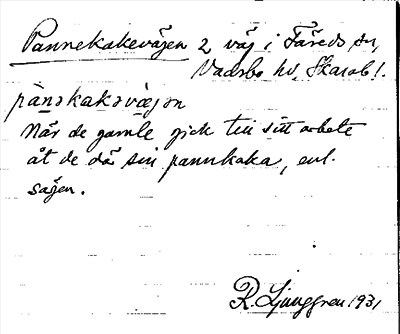 Pannekakevägen 2 väg i Färeds sn,
Vadsbo hd, Skarab l.
pànəkakəvæ̀gən
När de gamle gick till sitt arbete
åt de då sin pannkaka, enl.
sägen.
R. Ljunggren 1931